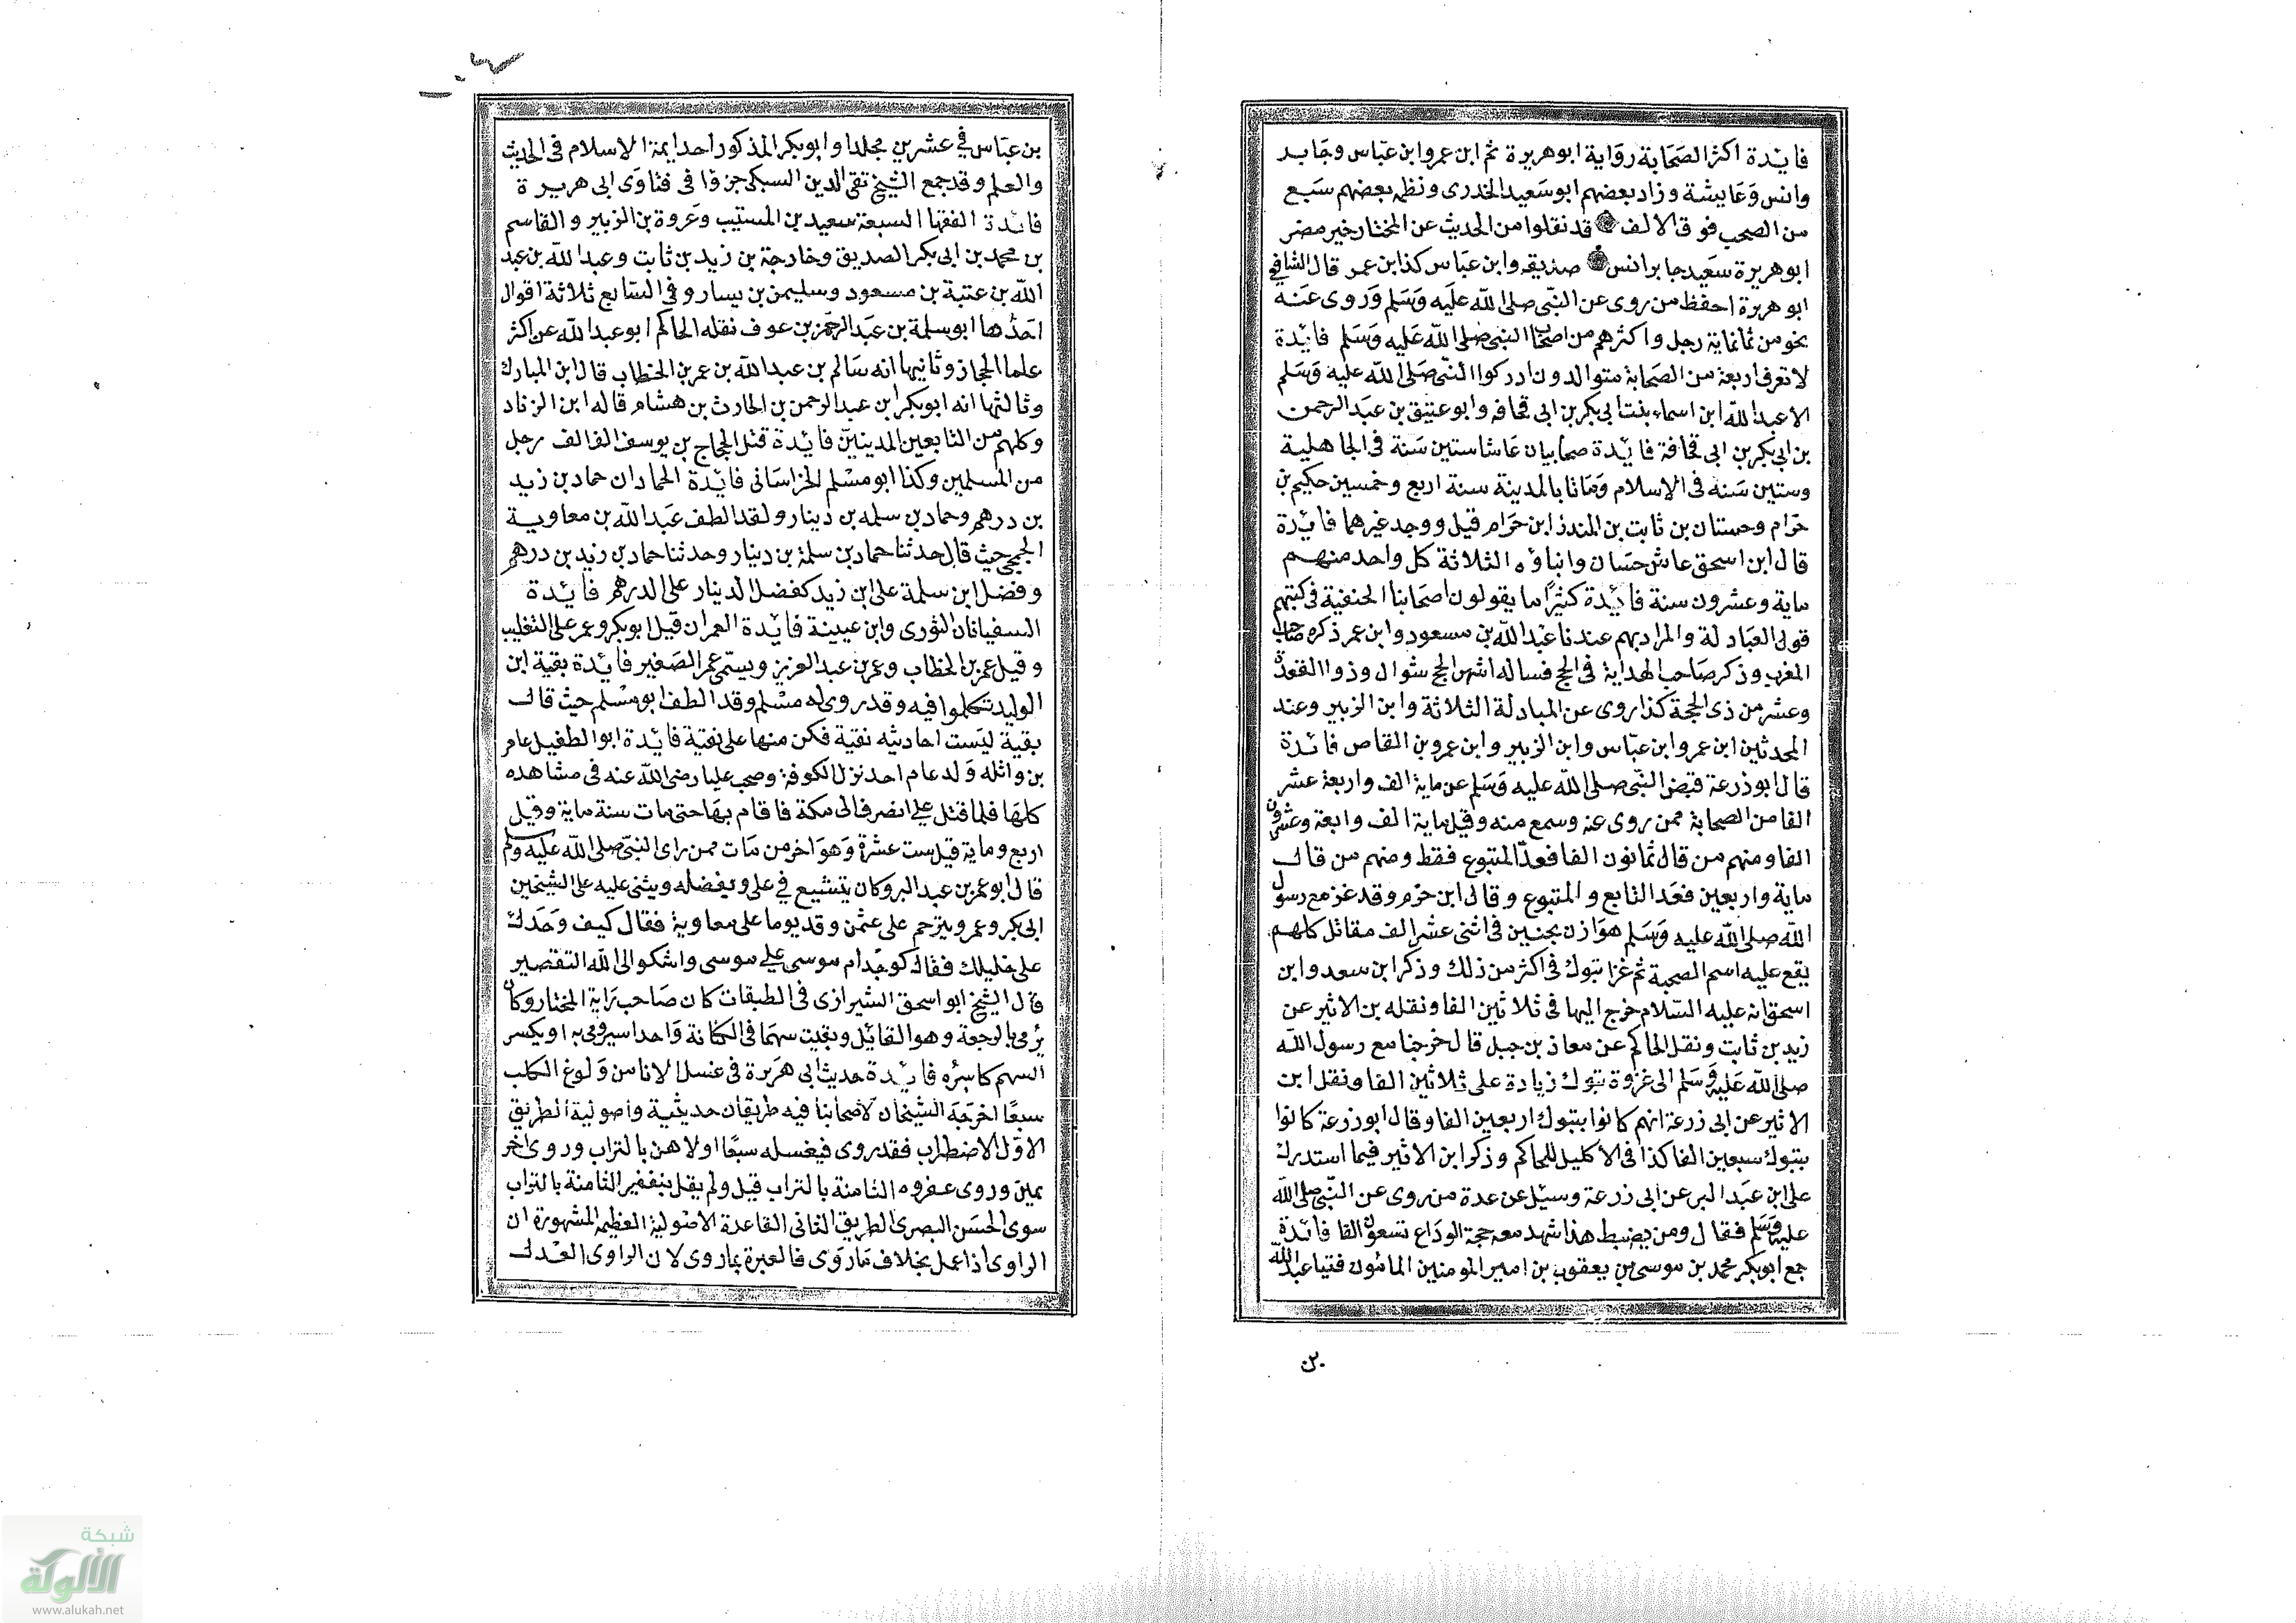 فايدة اكثر الصحابة رواية ابو هريرة ثم ابن عمر وابن عباس وجابر
وانس وعايشة وزاد بعضهم ابو سعيد الخدرى ونظم بعضهم سبع
من الصحب فوق الالف قد نقلوا من الحديث عن المختار خير مضر
ابو هريرة سعيد جابر انس صديقه وابن عباس كذا ابن عمر قال الشافعي
ابو هريرة احفظ من روى عن النبى صلى الله عليه وسلم وروى عنه
نحو من ثمانماية رجل واكثرهم من اصحاب النبى صلى الله عليه وسلم فايدة
لا تعرف اربعة من الصحابة متوالدون ادركوا النبى صلى الله عليه وسلم
الا عبد الله ابن اسماء بنت ابى بكر بن ابى قحافه وابو عتيق بن عبد الرحمن
بن ابى بكر بن ابى قحافة فايدة صحابيان عاشا ستين سنة فى الجاهلية
وستين سنه فى الاسلام وماتا بالمدينة سنة اربع وخمسين حكيم بن
حزام وحسان بن ثابت بن المنذر ابن حرام قيل ووجد غيرهما فايدة
قال ابن اسحق عاش حسان وابناؤه الثلاثة كل واحد منهم
ماية وعشرون سنة فايدة كثيرًا ما يقولون اصحابنا الحنفية فى كتبهم
قول العبادلة والمراد بهم عندنا عبد الله بن مسعود وابن عمر ذكره صاحب
المغرب وذكر صاحب الهداية فى الحج فساله اشهر الحج شوال وذوا القعدة
وعشر من ذى الحجة كذا روى عن العبادلة الثلاثة وابن الزبير وعند
المحدثين ابن عمر وابن عباس وابن الزبير وابن عمرو بن القاص فايدة
قال ابو زرعة قبض النبى صلى الله عليه وسلم عن ماية الف واربعة عشر
الفا من الصحابة ممن روى عنه وسمع منه وقيل ماية الف وابعة وعشرون
الفا ومنهم من قال ثمانون الفا فعد المتبوع فقط ومنهم من قال
ماية واربعين فعد التابع والمتبوع وقال ابن حزم وقد غز مع رسول
الله صلى الله عليه وسلم هوازن بحنين فى اثنى عشر الف مقاتل كلهم
يقع عليه اسم الصحبة ثم غزا تبوك فى اكثر من ذلك وذكر ابن سعد وابن
اسحق انه عليه السلام خرج اليها فى ثلاثين الفا ونقله بن الاثير عن
زيد بن ثابت ونقل الحاكم عن معاذ بن جبل قال خرجنا مع رسول الله
صلى الله عليه وسلم الى غزوة تبوك زيادة على ثلاثين الفا ونقل ابن
الاثير عن ابى زرعة انهم كانوا بتبوك اربعين الفا وقال ابو زرعة كانوا
بتبوك سبعين الفا كذا فى الاكليل للحاكم وذكر ابن الاثير فيما استدرك
على ابن عبد البر عن ابى زرعة وسيل عن عدة من روى عن النبى صلى الله
عليه وسلم فقال ومن يضبط هذا شهد معه حجة الوداع تسعون الفا فايدة
جمع ابو بكر محمد بن موسى بن يعقوب بن امير المومنين المامون فتيا عبد الله
بن
بن عباس في عشرين مجلدا وابو بكر المذكور احد ايمة الاسلام فى الحديث
والعلم وقد جمع الشيخ تقى الدين السبكى جزؤا فى فتاوى ابى هريرة
فائدة الفقها السبعة سعيد بن المسيب وعروة بن الزبير والقاسم
بن محمد بن ابى بكر الصديق وخارجة بن زيد بن ثابت وعبد الله بن عبد
الله بن عتبة بن مسعود وسليمن بن يسار وفى السابع ثلاثة اقوال
احدها ابو سلمة بن عبد الرحمن بن عوف نقله الحاكم ابو عبد الله عن اكثر
علما الحجاز وثانيها انه سالم بن عبد الله بن عمر بن الخطاب قال ابن المبارك
وثالثها انه ابو بكر ابن عبد الرحمن بن الحارث بن هشام قاله ابن الزناد
وكلهم من التابعين المدينين فايدة قتل الحجاج بن يوسف الف الف رجل
من المسلمين وكذا ابو مسلم الخراسانى فايدة الحمادان حماد بن زيد
بن درهم وحماد بن سلمه بن دينار ولقد الطف عبد الله بن معاوية
الجمحى حيث قال حدثنا حماد بن سلمة بن دينار وحدثنا حماد بن زيد بن درهم
وفضل ابن سلمة على ابن زيد كفضل الدينار على الدرهم فايدة
السفيانان الثورى وابن عيينة فايدة العمران قيل ابو بكر وعمر على التغليب
وقيل عمر بن الخطاب وعمر بن عبد العزيز ويسمى عمر الصغير فايدة بقية ابن
الوليد تكلموا فيه وقد روى له مسلم وقد الطف ابو مسلم حيث قال
بقية ليست احاديثه نقية فكن منها على تقية فايدة ابو الطفيل عامر
بن واثله ولد عام احد نزل الكوفة وصحب عليا رضى الله عنه فى مشاهده
كلها فلما قتل علي انصرف الى مكة فاقام بها حتى مات سنة ماية وقيل
اربع وماية قيل ست عشرة وهو اخر من مات ممن راى النبى صلى الله عليه وسلم
قال ابو عمر بن عبد البر وكان يتشيع في على ويفضله ويثنى عليه على الشيخين
ابى بكر وعمر ويترحم على عثمن وقد يوما على معاوية فقال كيف وجدك
على خليلك فقال كوجد ام موسى علي موسى واشكوا الى الله التقصير
قال الشيخ ابو اسحق الشيرازى فى الطبقات كان صاحب راية المختار وكان
يرمى بالرجعة وهو القايل وبقيت سهما فى الكنانة واحدا سيرمى به او يكسر
السهم كاسره فايدة حديث ابى هريرة فى غسل الانا من ولوغ الكلب
سبعًا اخرجه الشيخان لاصحابنا فيه طريقان حديثية واصولية الطريق
الاول الاضطراب فقد روى فيغسله سبعًا اولاهن بالتراب وروى اخر
بمين وروى عفروه الثامنة بالتراب قيل ولم يقل بتغفير الثامنة بالتراب
سوى الحسن البصرى الطريق الثانى القاعدة الاصولية العظيمة المشهورة ان
الراوى اذا عمل بخلاف ما روى فالعبرة بما روى لان الراوى العدل
شبكة
الألوكة
www.alukah.net